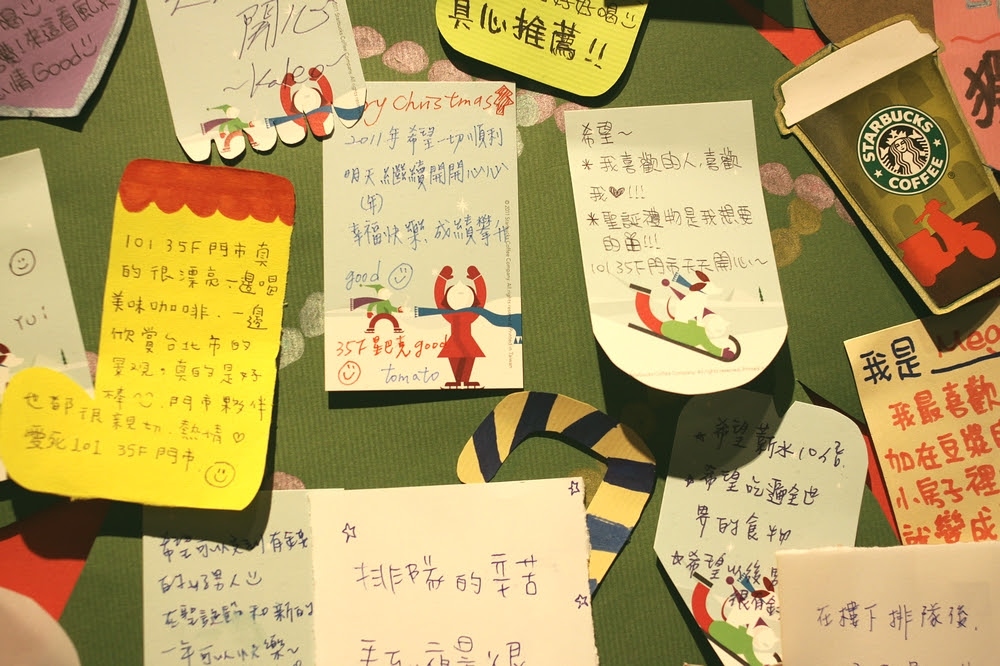 來這看風
情Good
開心
~Kaleo~
好好喝
真心推薦!!
STARBUCKS
COFFEE
ry Christmas
2011年希望一切順利
明天繼續開開心心
(年)
幸福快樂,成績攀升
good
35F 星巴克 good
tomato
希望~
*我喜歡的人,喜歡
我♥!!!
*聖誕禮物是我想要
的
101 35F門市天天開心~
Yui
101 35F門市真
的很漂亮,一邊喝
美味咖啡,一邊
欣賞台北市的
景觀,真的是好
棒~ 門市夥伴
也都很親切.熱情♡
愛死101 35F門市.
我是 Meg
我最喜歡
加在豆漿
小房子裡
就變成
☆希望薪水10倍.
☆希望吃遍全世
界的食物
☆希望以後
很有
希望可以交到有錢
的好男人
在聖誕節和新的
一年可以快樂~
排隊的辛苦
在樓下排隊後,